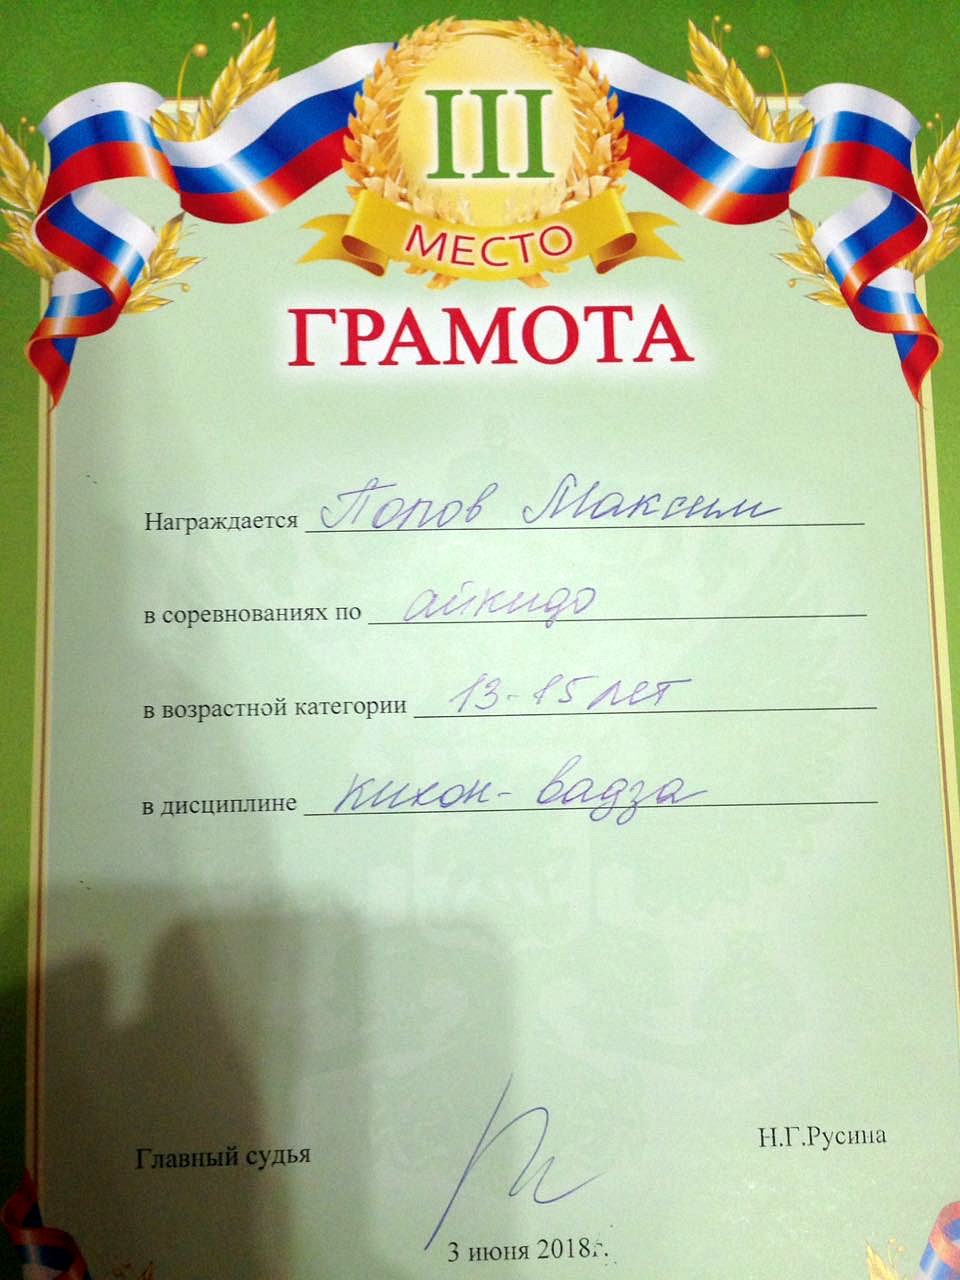 III
МЕСТО
ГРАМОТА
Награждается Попов Максим
в соревнованиях по айкидо
в возрастной категории 13-15 лет
в дисциплине кихон-вадза
Главный судья
Н.Г.Русина
3 июня 2018г.